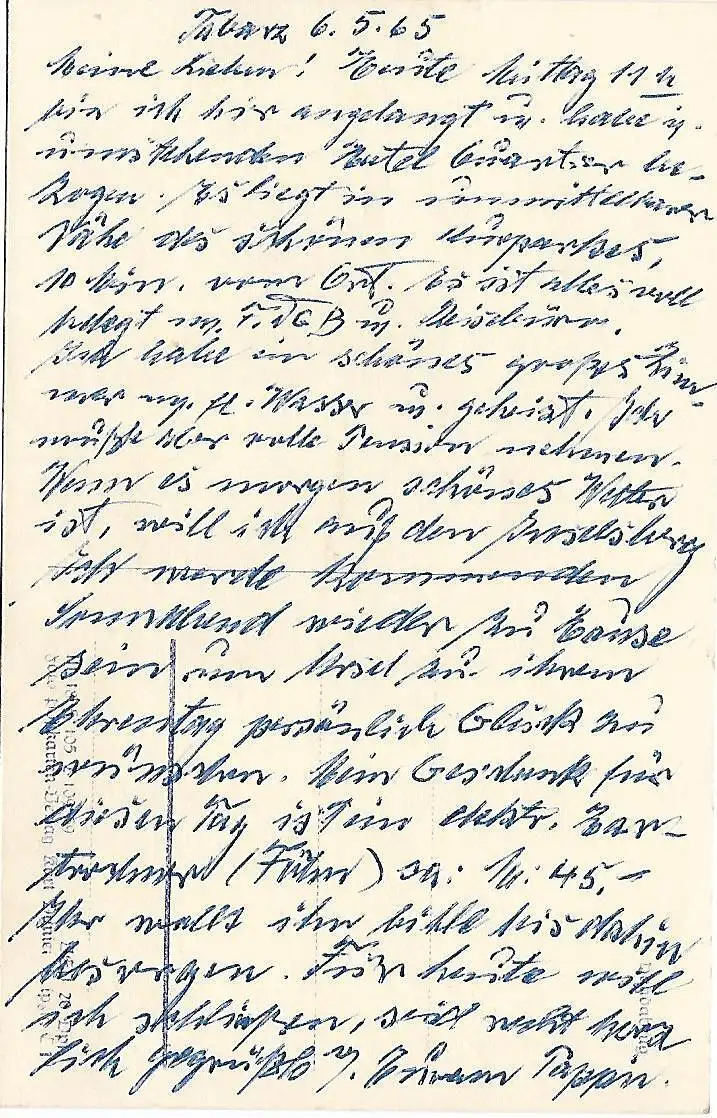 Tabarz 6.5.65
Meine Lieben! Heute Mittag 11 h
bin ich hir angelangt u. habe i.
umstehenden Hotel Quartier be-
zogen. Es liegt in unmittelbarer
Nähe des schönen Kurparkes,
10 Min. vom Ort. Es ist alles voll
belegt m. F.D.G.B u. Reisebüro.
Ich habe ein schönes großes Zim-
mer m. fl. Wasser u. geheizt. Ich
mußte aber volle Pension nehmen.
Wenn es morgen schönes Wetter
ist, will ich auf den Inselsberg
Ich werde kommenden
Sonnabend wieder zu Hause
sein um Ursel zu ihrem
Ehrentag persönlich Glück zu
wünschen. Mein Geschenk für
diesen Tag ist ein elektr. Haar-
trockner (Föhn) ca: M: 45,-
Ihr wollt ihn bitte bis dahin
besorgen. Für heute will
ich schließen, seid recht herz
lich gegrüßt v. Eurem